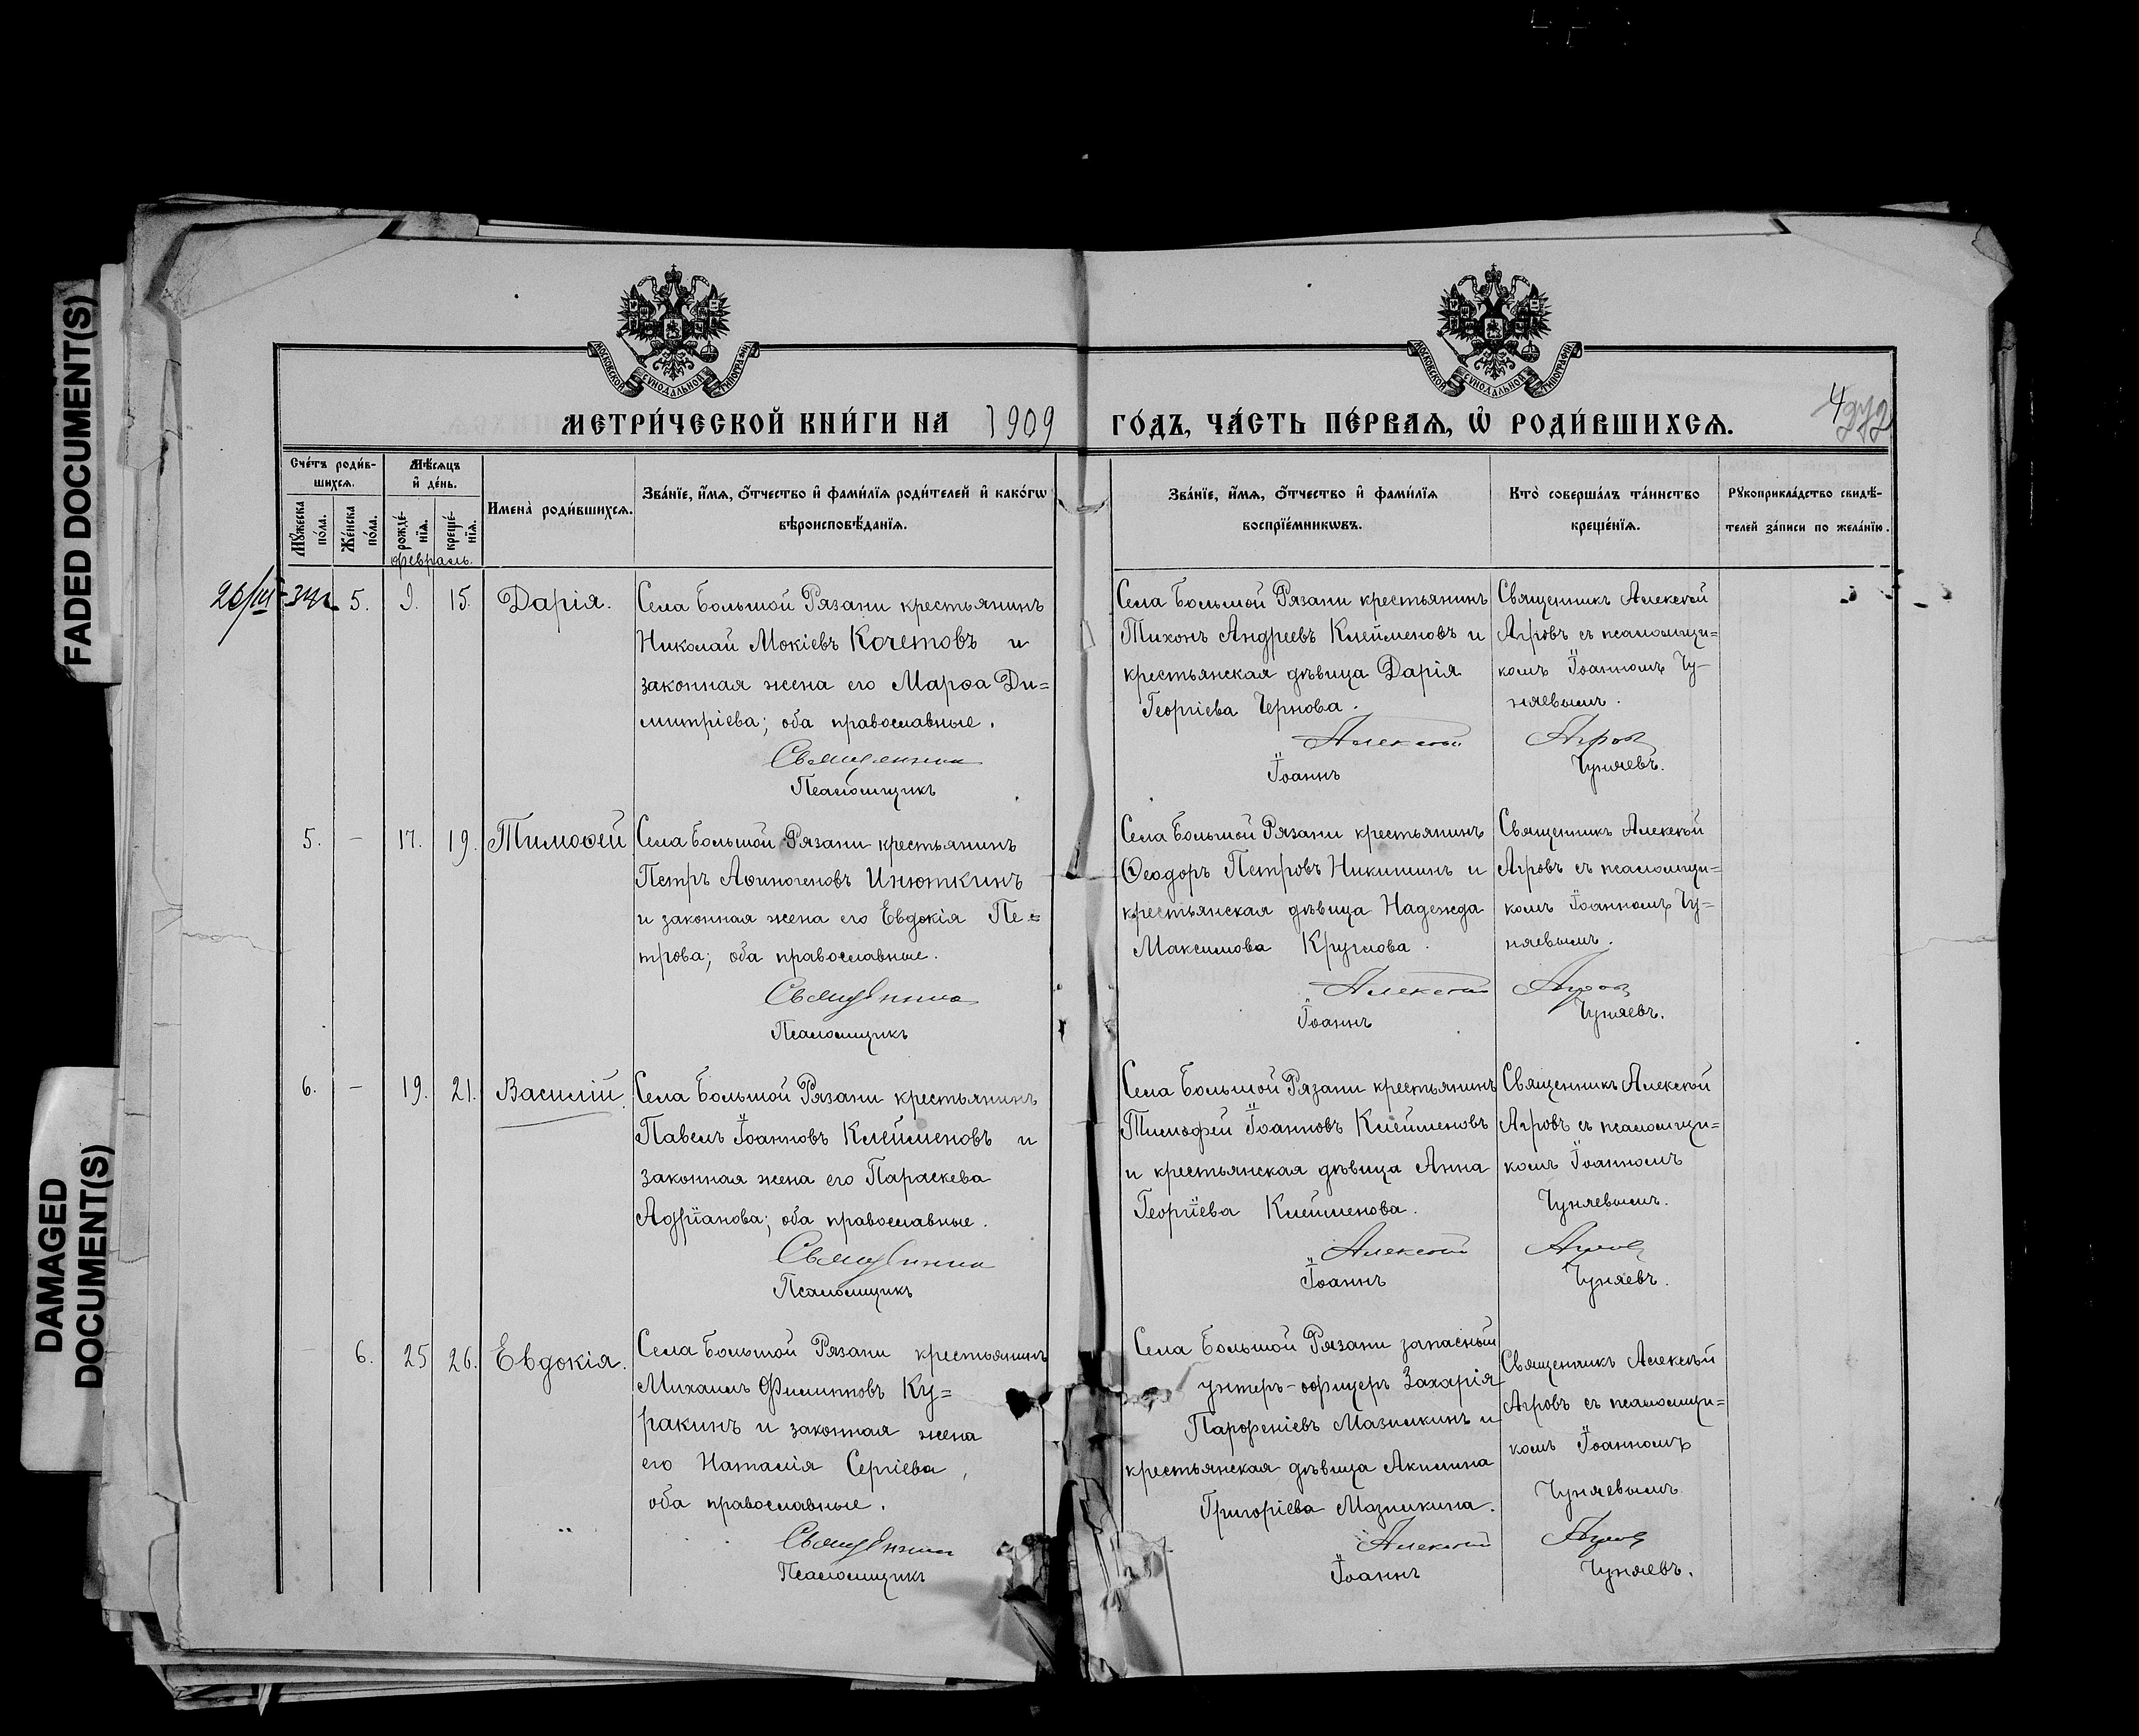 FADED DOCUMENT(S)
DAMAGED
DOCUMENT(S)
МОСКОВСКОЙ СѴНОДАЛЬНОЙ ТИПОГРАФІИ
МОСКОВСКОЙ СѴНОДАЛЬНОЙ ТИПОГРАФІИ
МЕТРИ́ЧЕСКОЙ КНИ́ГИ НА 1909 ГО́ДЪ, ЧА́СТЬ ПЕ́РВАѦ, Ѡ҆ РОДИ́ВШИХСѦ.
4
272
Сче́тъ роди́в-
шихсѧ.
Мѣ́сѧцъ
и҆ де́нь.
Мꙋ́жеска
по́ла.
Же́нска
по́ла.
рожде́-
нїѧ.
креще́-
нїѧ.
Имена̀ роди́вшихсѧ.
Зва́нїе, и҆́мѧ, ѻ҆́тчество и҆ фами́лїѧ роди́телей и҆ како́гѡ
вѣроисповѣ́данїѧ.
Зва́нїе, и҆́мѧ, ѻ҆́тчество и҆ фами́лїѧ
воспрїе́мникѡвъ.
Кто̀ соверша́лъ та́инство
креще́нїѧ.
Рꙋкоприкла́дство свидѣ́-
телей за́писи по жела́нїю.
февраль.
5.
9.
15.
Дарія.
Села Большой Рязани крестьянинъ
Николай Мокіевъ Кочетовъ и
законная жена его Марѳа Ди=
митріева; оба православные.
Священникъ
Псаломщикъ
Села Большой Рязани крестьянинъ
Тихонъ Андреевъ Клейменовъ и
крестьянская дѣвица Дарія
Георгіева Чернова.
Алексѣй
Іоаннъ
Священникъ Алексѣй
Агровъ съ псаломщи=
комъ Іоанномъ Чу-
няевымъ.
Агровъ
Чуняевъ.
5.
-
17.
19.
Тимоѳей
Села Большой Рязани крестьянинъ
Петръ Аѳиногеновъ Инюткинъ
и законная жена его Евдокія Пе=
трова; оба православные.
Священникъ
Псаломщикъ
Села Большой Рязани крестьянинъ
Ѳеодоръ Петровъ Никишинъ и
крестьянская дѣвица Надежда
Максимова Круглова.
Алексѣй
Іоаннъ
Священникъ Алексѣй
Агровъ съ псаломщи=
комъ Іоанномъ Чу=
няевымъ.
Агровъ
Чуняевъ.
6.
-
19.
21.
Василій.
Села Большой Рязани крестьянинъ
Павелъ Іоанновъ Клейменовъ и
законная жена его Параскева
Адріанова; оба православные.
Священникъ
Псаломщикъ
Села Большой Рязани крестьянинъ
Тимофей Іоанновъ Клейменовъ
и крестьянская дѣвица Анна
Георгіева Клейменова.
Алексѣй
Іоаннъ
Священникъ Алексѣй
Агровъ съ псаломщи=
комъ Іоанномъ
Чуняевымъ.
Агровъ
Чуняевъ.
6.
25
26.
Евдокія.
Села Большой Рязани крестьянинъ
Михаилъ Филипповъ Ку=
ракинъ и законная жена
его Наталія Сергіева,
оба православные.
Священникъ
Псаломщикъ
Села Большой Рязани запасный
унтеръ-офицеръ Захарія
Парфеніевъ Мазилкинъ и
крестьянская дѣвица Акилина
Григоріева Мазилкина.
Алексѣй
Іоаннъ
Священникъ Алексѣй
Агровъ съ псаломщи=
комъ Іоанномъ
Чуняевымъ
Агровъ
Чуняевъ.